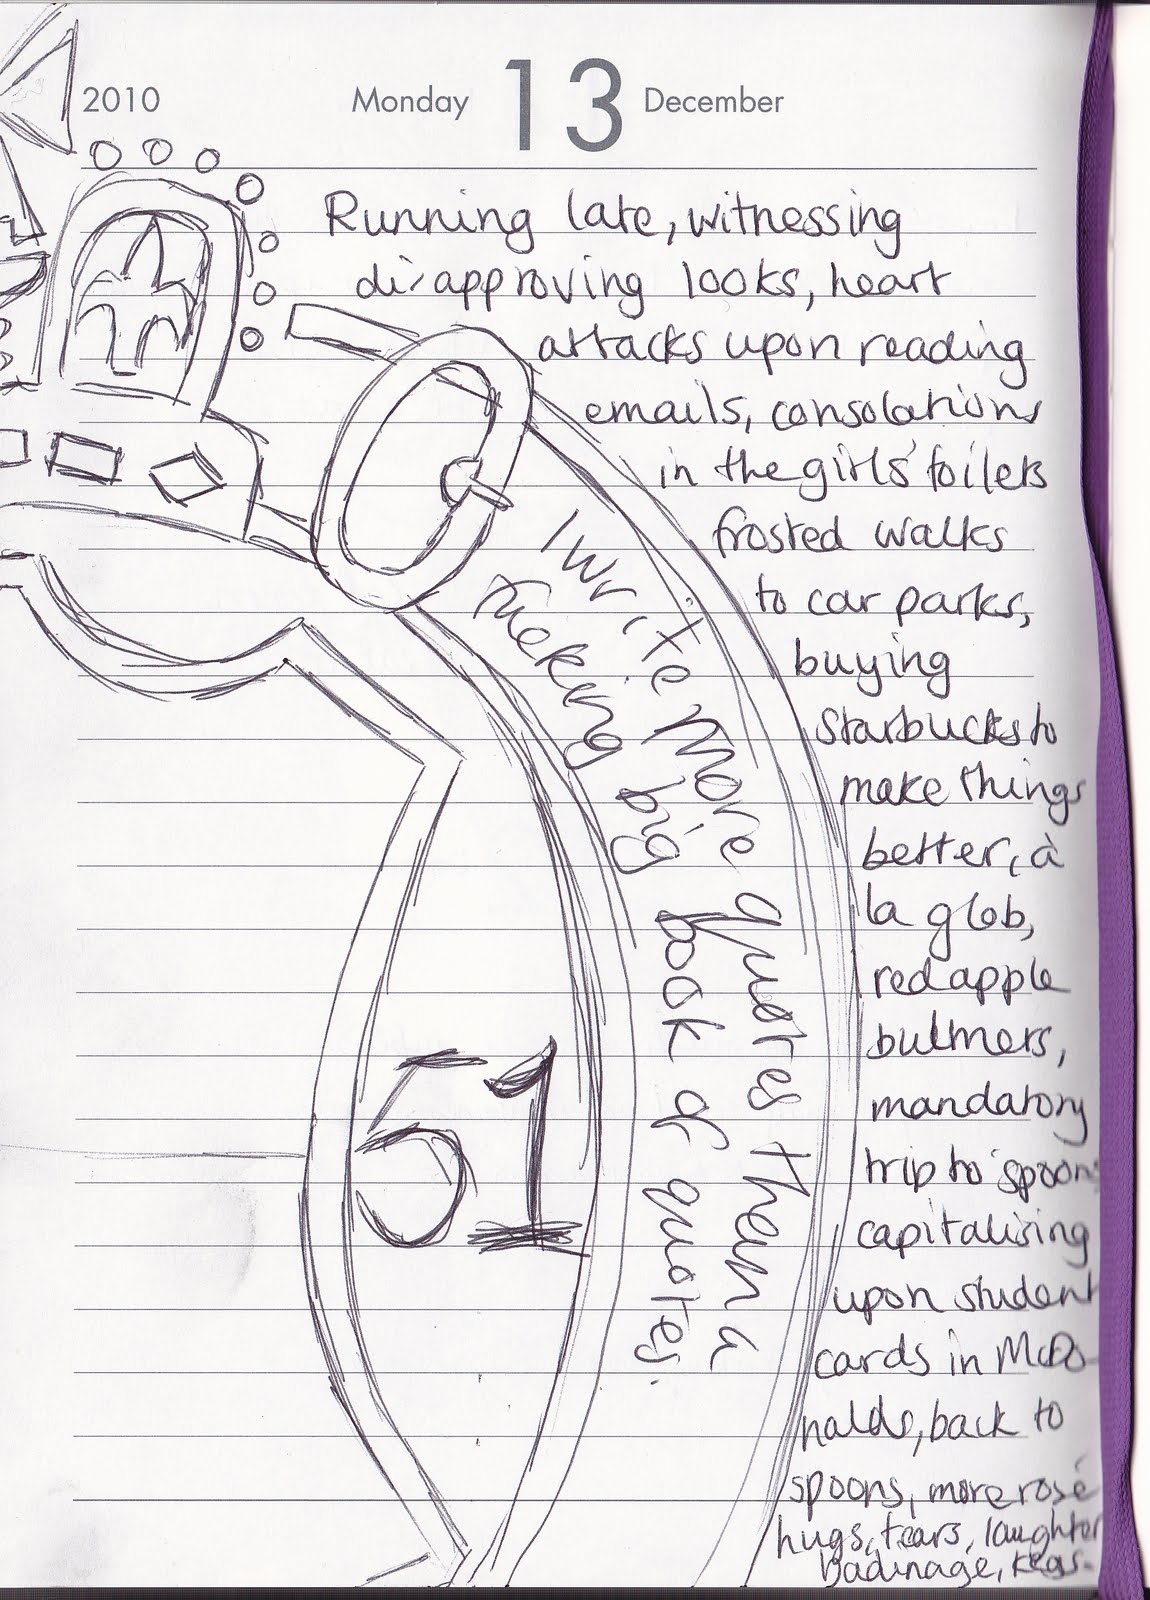 2010 Monday 13 December
Running late, witnessing
disapproving looks, heart
attacks upon reading
emails, consolations
in the girls' toilets
frosted walks
to car parks,
buying
Starbucks to
make things
better, à
la glob,
red apple
bulmers,
mandatory
trip to 'spoons
capitalising
upon student
cards in McDo-
nalds, back to
spoons, more rosé
hugs, tears, laughter
badinage, kegs.
I write more quotes than a
fucking big book of quotes.
51